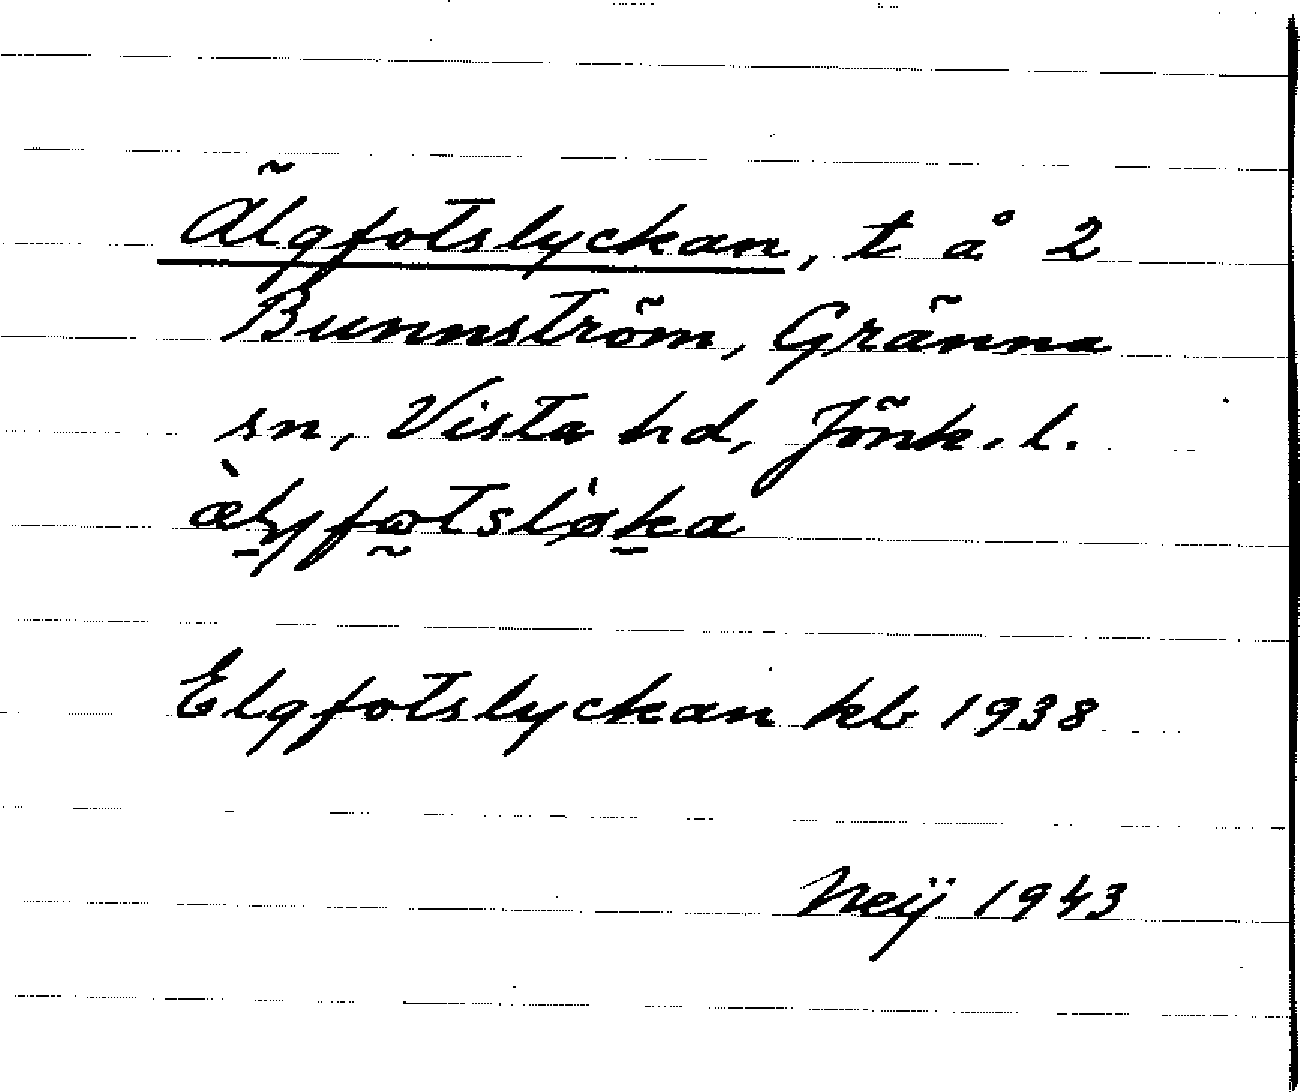 Älgfotslyckan, t å 2
Bunnström, Gränna
sn, Vista hd, Jönk. l.
Elgfotslyckan kb 1938
Neij 1943